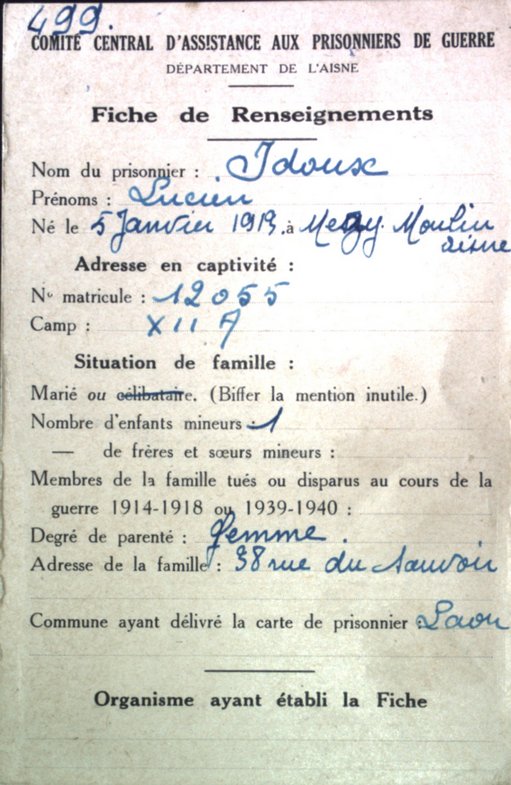 499.
COMITÉ CENTRAL D'ASSISTANCE AUX PRISONNIERS DE GUERRE
DÉPARTEMENT DE L'AISNE
Fiche de Renseignements
Nom du prisonnier : Idoux
Prénoms : Lucien
Né le 5 Janvier 1913. à Mezy. Moulin
aisne
Adresse en captivité :
No matricule : 12055
Camp : XII
Situation de famille :
Marié ou célibataire. (Biffer la mention inutile.)
Nombre d'enfants mineurs : 1
— de frères et sœurs mineurs :
Membres de la famille tués ou disparus au cours de la
guerre 1914-1918 ou 1939-1940 :
Degré de parenté : femme.
Adresse de la famille : 38 rue du Sauvoir
Commune ayant délivré la carte de prisonnier : Laon
Organisme ayant établi la Fiche